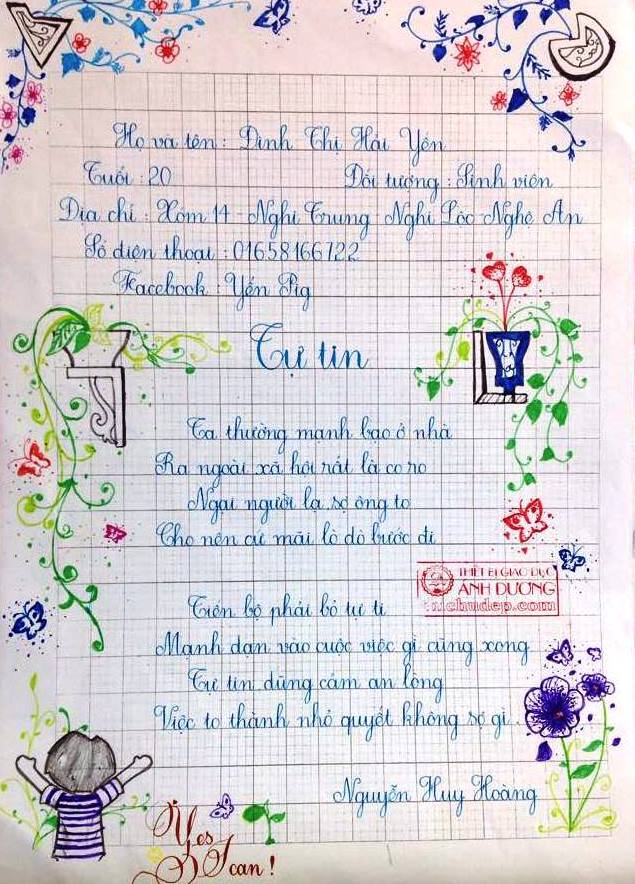 Họ và tên : Đinh Thị Hải Yến
Tuổi : 20 Đối tượng : Sinh viên
Địa chỉ : Xóm 14 - Nghi Trung - Nghi Lộc - Nghệ An
Số điện thoại : 01658166722
Facebook : Yến Pig
Tự tin
Ta thường mạnh bạo ở nhà
Ra ngoài xã hội rất là co ro
Ngại người lạ, sợ ông to
Cho nên cứ mãi lò dò bước đi
Tiến bộ phải bỏ tự ti
Mạnh dạn vào cuộc việc gì cũng xong
Tự tin dũng cảm an lòng
Việc to thành nhỏ quyết không sợ gì.
Nguyễn Huy Hoàng
THIẾT BỊ GIÁO DỤC
ÁNH DƯƠNG
Yes
I can !